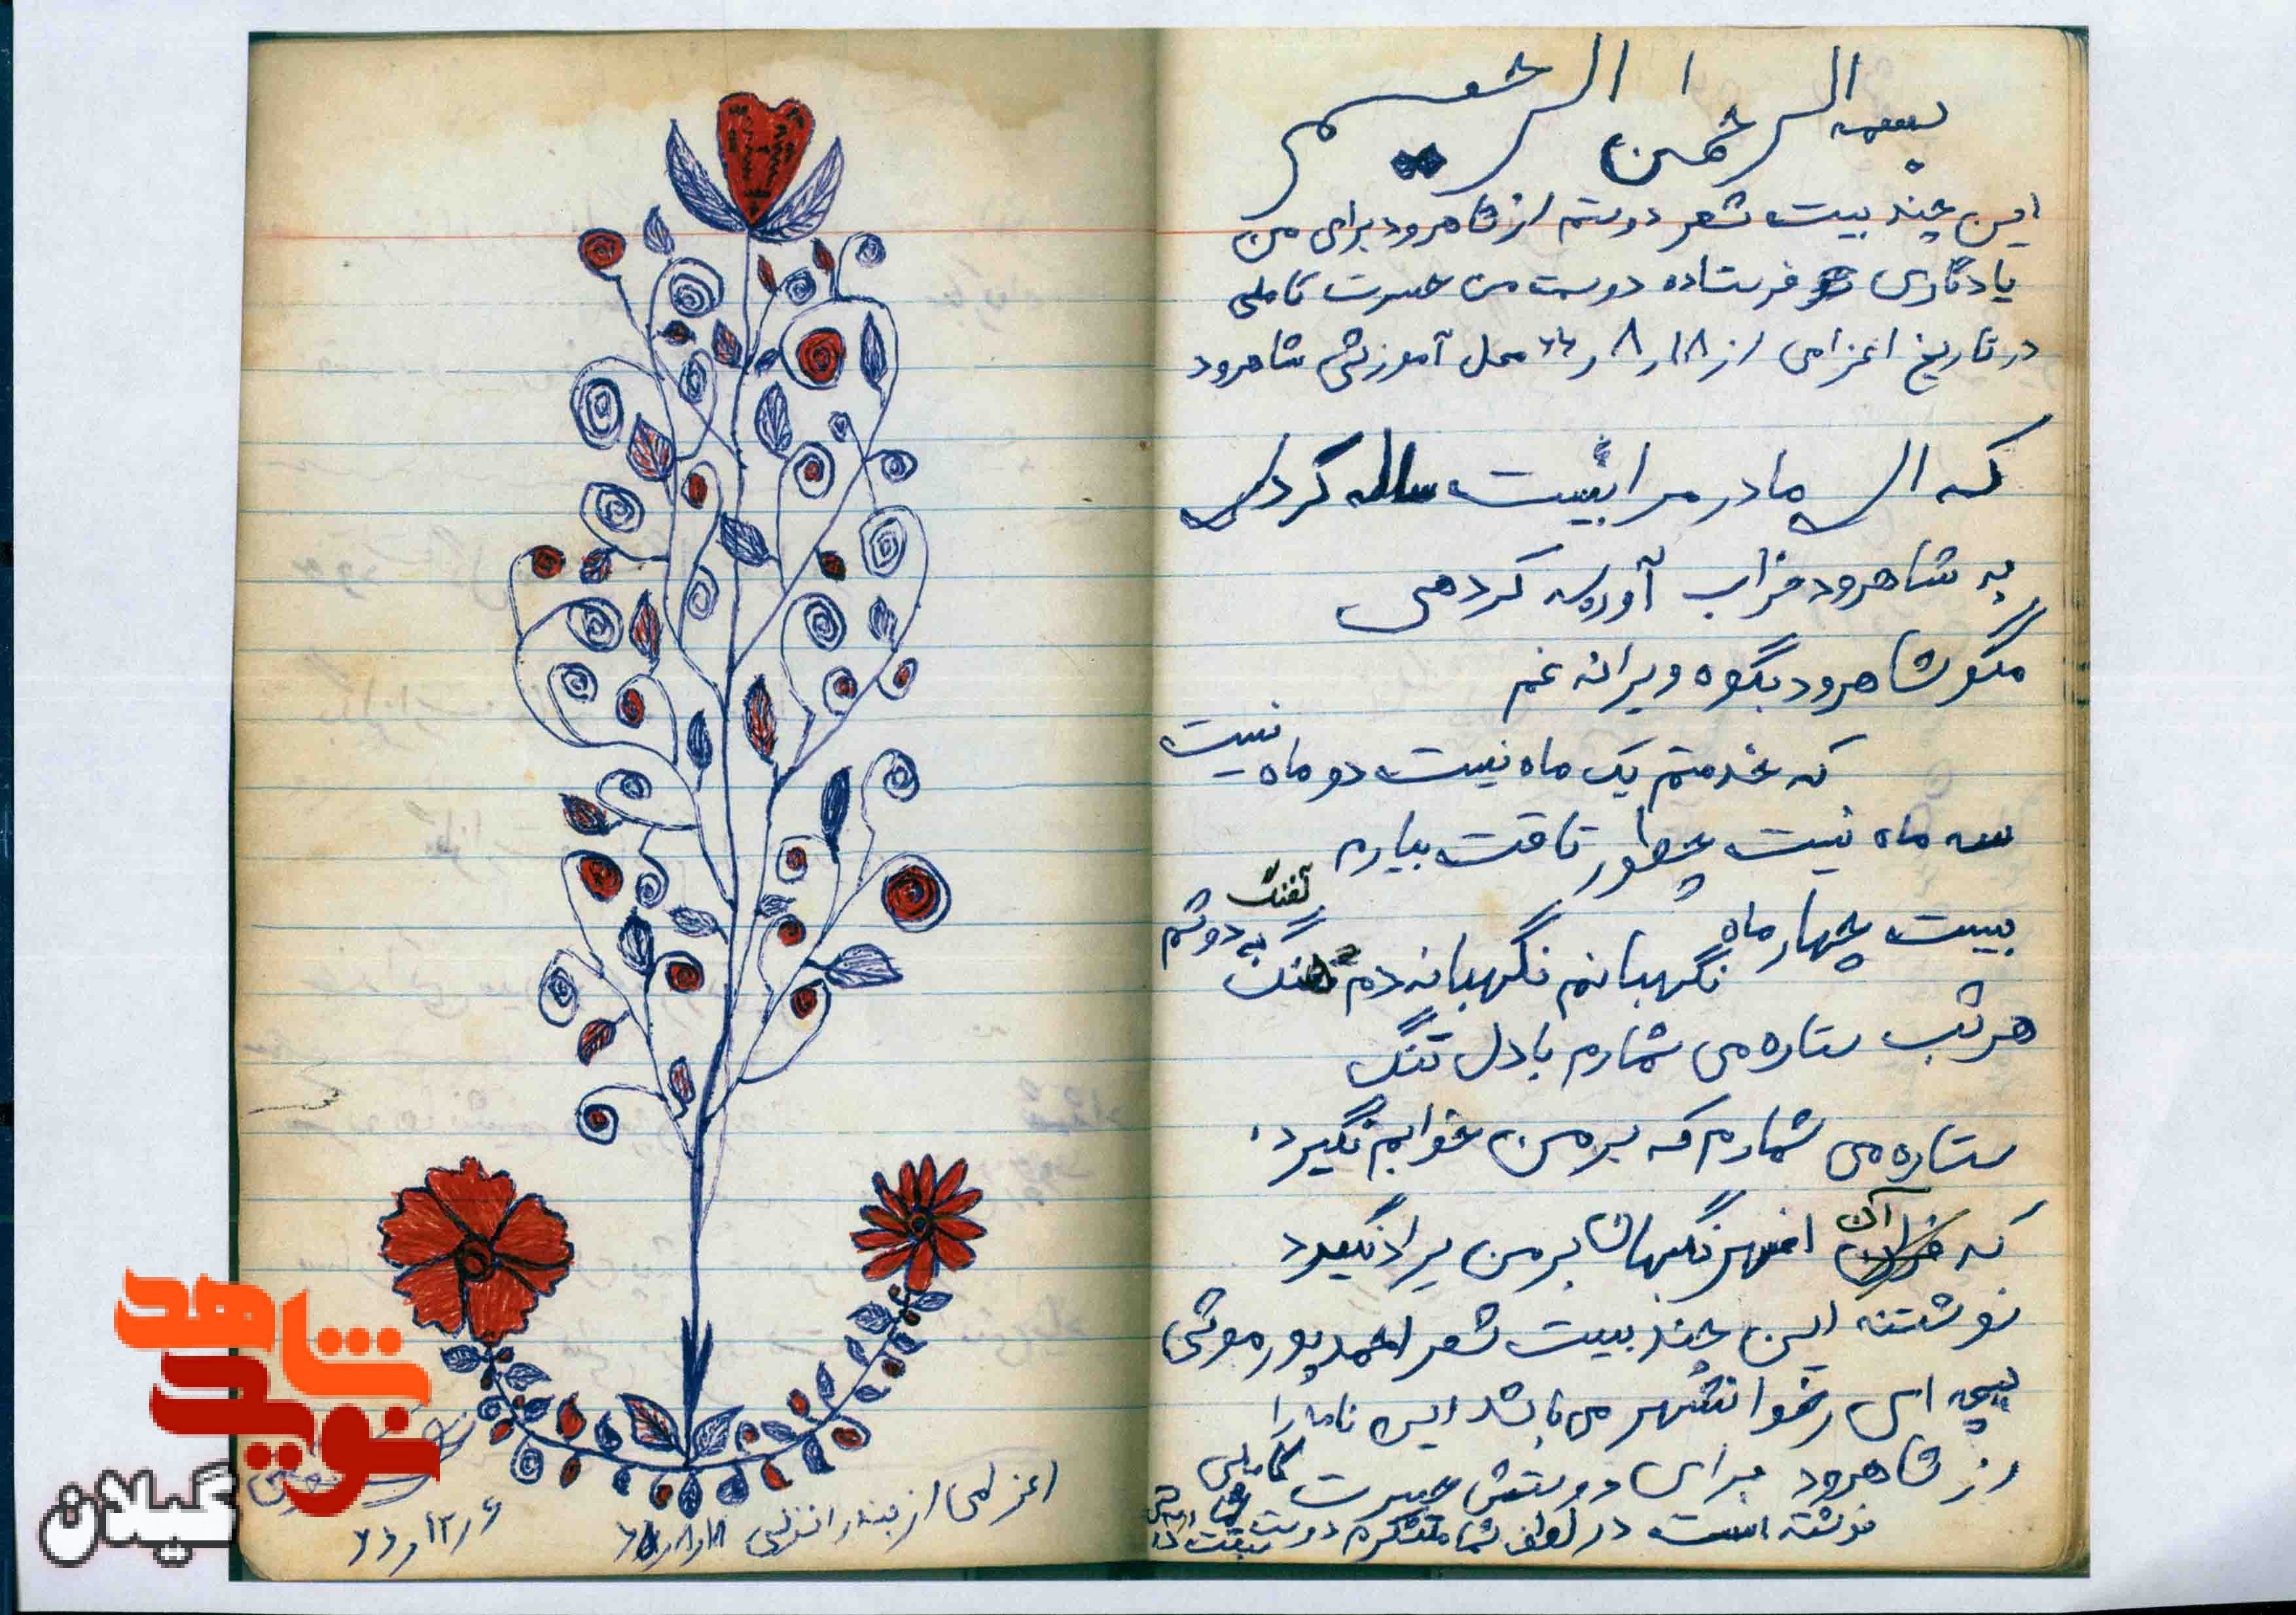 بسم الله الرحمن الرحیم
این چند بیت شعر دوستم از شاهرود برای من
یادگاری فرستاده دوست من حسرت کاملی
در تاریخ اعزامی از ۱۸ر۸ر۶۶ محل آموزشی شاهرود
که ال مادر مرا بیست ساله کردی
به شاهرود خراب آوره کردهی
مگو شاهرود بگوه ویرانه غم
که خدمتم یک ماه نیست دو ماه نیست
سه ماه نیست چطور تاقت بیارم
بیست چهار ماه
نگهبانم نگهبانه دم تفنگ به دوشم
هر شب ستاره می شمارم با دل تنگ
ستاره می شمارم که بر من خوابم نگیرد
که آن افسر نگهبان بر من یراد نگیرد
نوشتنه این چند بیت شعر احمد پور موشی
بچه اس رضوانشهر می باشد این نامه را
از شاهرود برای دوستش حسرت کاملی
نوشته است در لطف شما متشکرم دوست
اعزامی از بندر انزلی ۱۸ر۸ر۶۶
۶ر۱۲ر۶۶
شاهد
نوید
گیلان